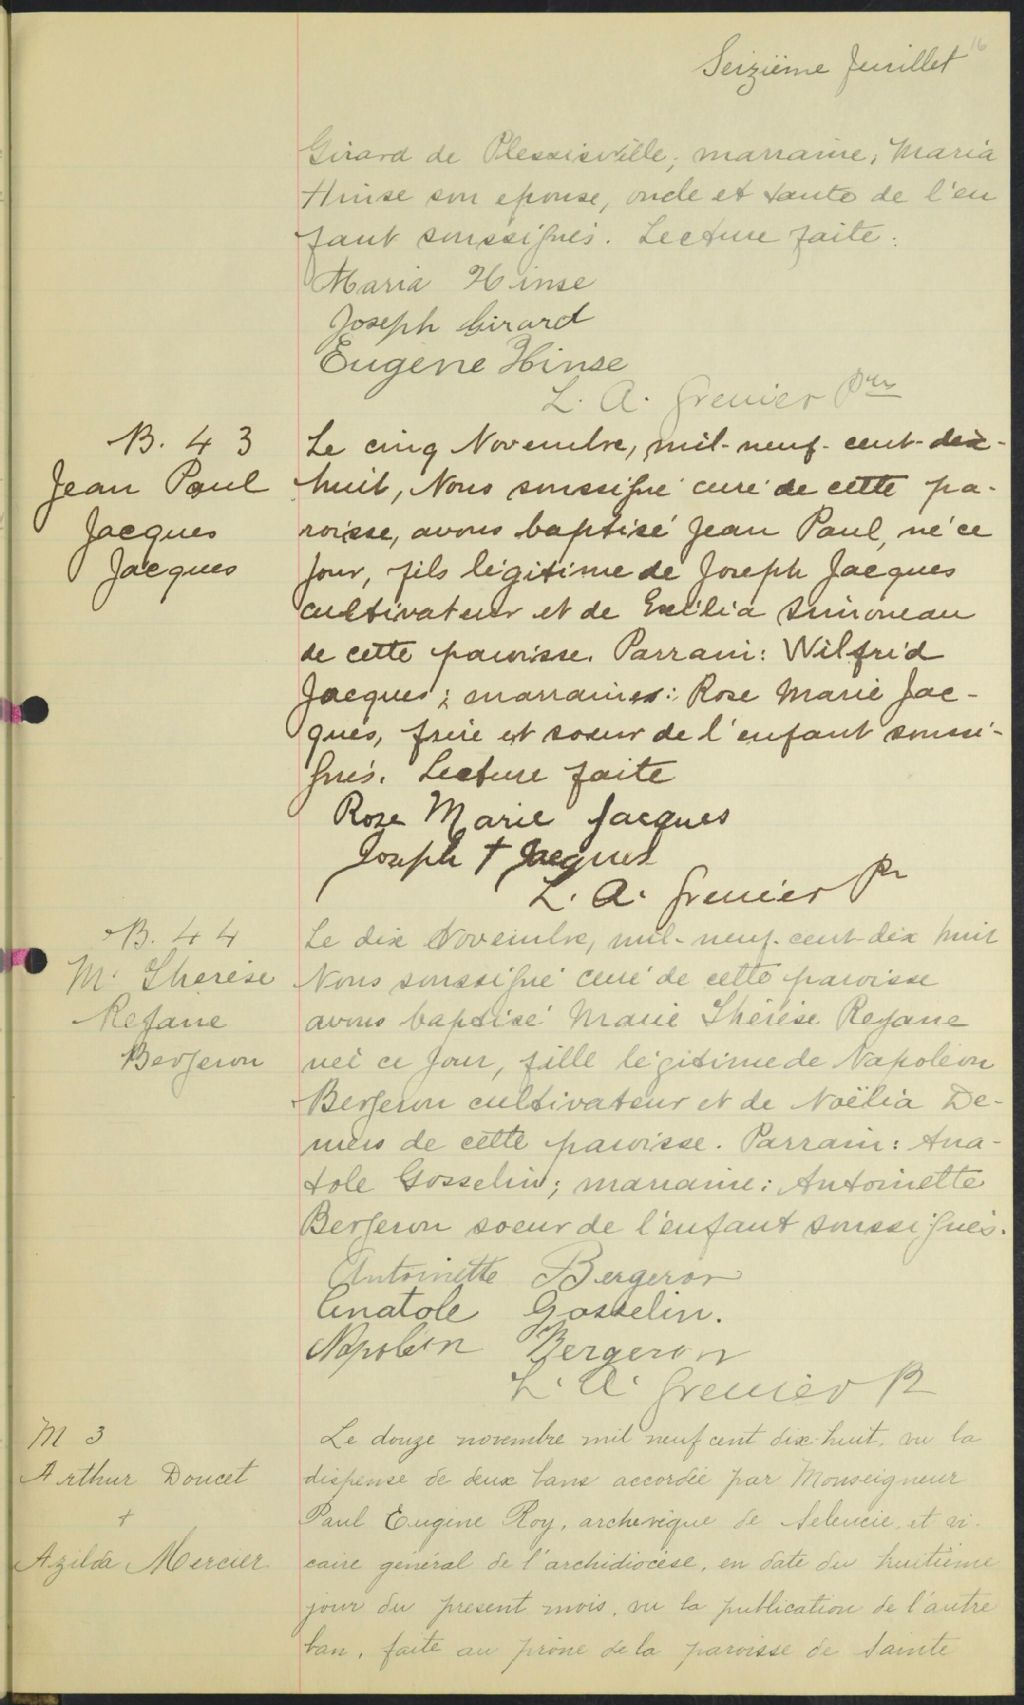 Seizième feuillet 16
Girard de Plessisville; marraine, Maria
Hinse son epouse, oncle et tante de l'en
fant soussignés. Lecture faite.
Maria Hinse
Joseph Girard
Eugène Hinse
L. A. Grenier Ptre
B. 43
Jean Paul
Jacques
Jacques
Le cinq Novembre, mil-neuf-cent-dix-
huit, Nous soussigné curé de cette pa-
roisse, avons baptisé Jean Paul, né ce
jour, fils légitime de Joseph Jacques
cultivateur et de Simoneau
de cette paroisse. Parrain: Wilfrid
Jacques; marraines: Rose Marie Jac-
ques, frère et soeur de l'enfant soussi-
gnés. Lecture faite
Rose Marie Jacques
Joseph + Jacques
L. A. Grenier Pr
B. 44
M. Thérèse
Rejane
Bergeron
Le dix Novembre, mil-neuf-cent-dix huit
Nous soussigné curé de cette paroisse
avons baptisé Marie Thérèse Rejane
neé ce jour, fille légitime de Napoléon
Bergeron cultivateur et de Noëlia De-
mers de cette paroisse. Parrain: Ana-
tole Gosselin; marraine: Antoinette
Bergeron soeur de l'enfant soussignés.
Antoinette Bergeron
Anatole Gosselin.
Napoléon Bergeron
L. A. Grenier Pr
M 3
Arthur Doucet
+
Azilda Mercier
Le douze novembre mil neuf cent dix-huit, vu la
dispense de deux bans accordée par Monseigneur
Paul Eugène Roy, archevêque de Seleucie, et vi-
caire général de l'archidiocèse, en date du huitième
jour du present mois, vu la publication de l'autre
ban, faite au prône de la paroisse de Sainte